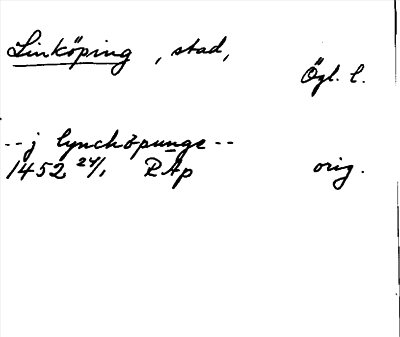 Linköping, stad,
Ögl. l.
-- j lynchöpunge --
1452 24/1 RAp orig.